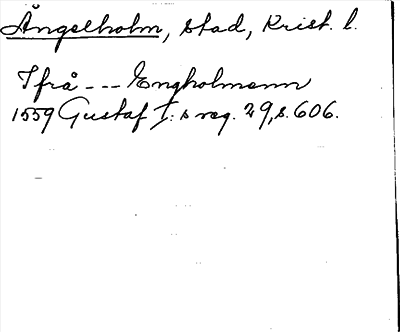 Ängelholm, stad, Krist. l.
Ifrå --- Engholmenn
1559 Gustaf I:s reg. 29, s. 606.